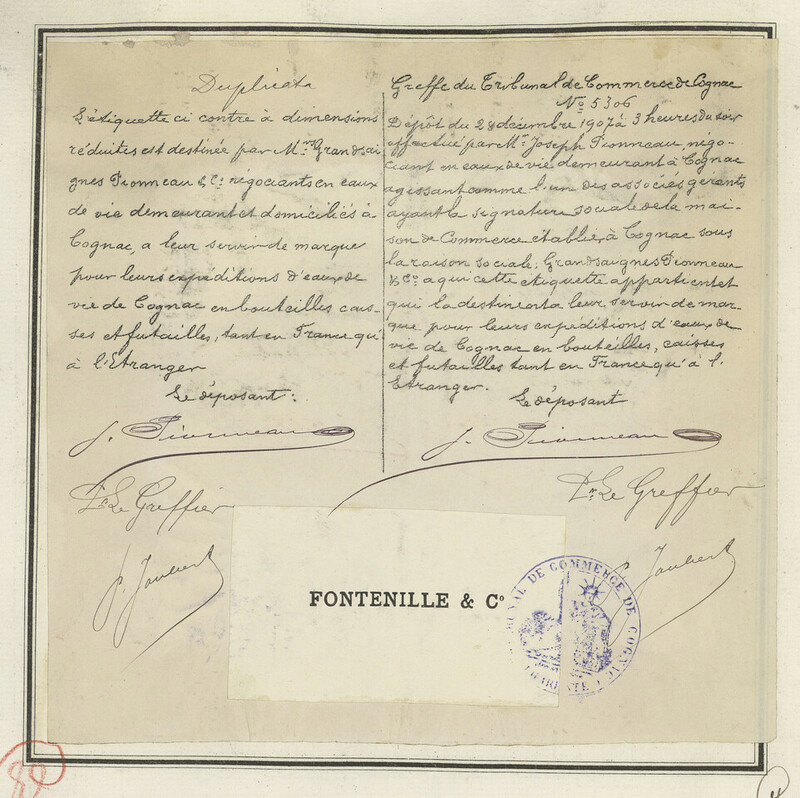 Duplicata
L'étiquette ci contre à dimensions
réduites est destinée par Mrs Grandsai
gnes Pionneau & Cie négociants en eaux
de vie demeurant et domiciliés à
Cognac, a leur servir de marque
pour leurs expéditions d'eaux de
vie de Cognac en bouteilles cais-
ses et futailles, tant en France qu'
à l'Etranger
Le déposant:
J. Pionneau
Pr Le Greffier
P. Joubert
Greffe du Tribunal de Commerce de Cognac
No 5306
Dépôt du 28 décembre 1907 à 3 heures du soir
effectué par Mr Joseph Pionneau, négo-
ciant en eaux de vie demeurant à Cognac
agissant comme l'un des associés gérants
ayant la signature sociale de la mai-
son de Commerce établie à Cognac sous
la raison sociale: Grandsaignes Pionneau
& Cie a qui cette étiquette appartient et
qui la destine a leur servir de mar-
que pour leurs expéditions d'eaux de
vie de Cognac en bouteilles, caisses
et futailles tant en France qu'à l'
Etranger.
Le déposant
J. Pionneau
Pr Le Greffier
P. Joubert
FONTENILLE & Co
TRIBUNAL DE COMMERCE DE COGNAC
CHARENTE